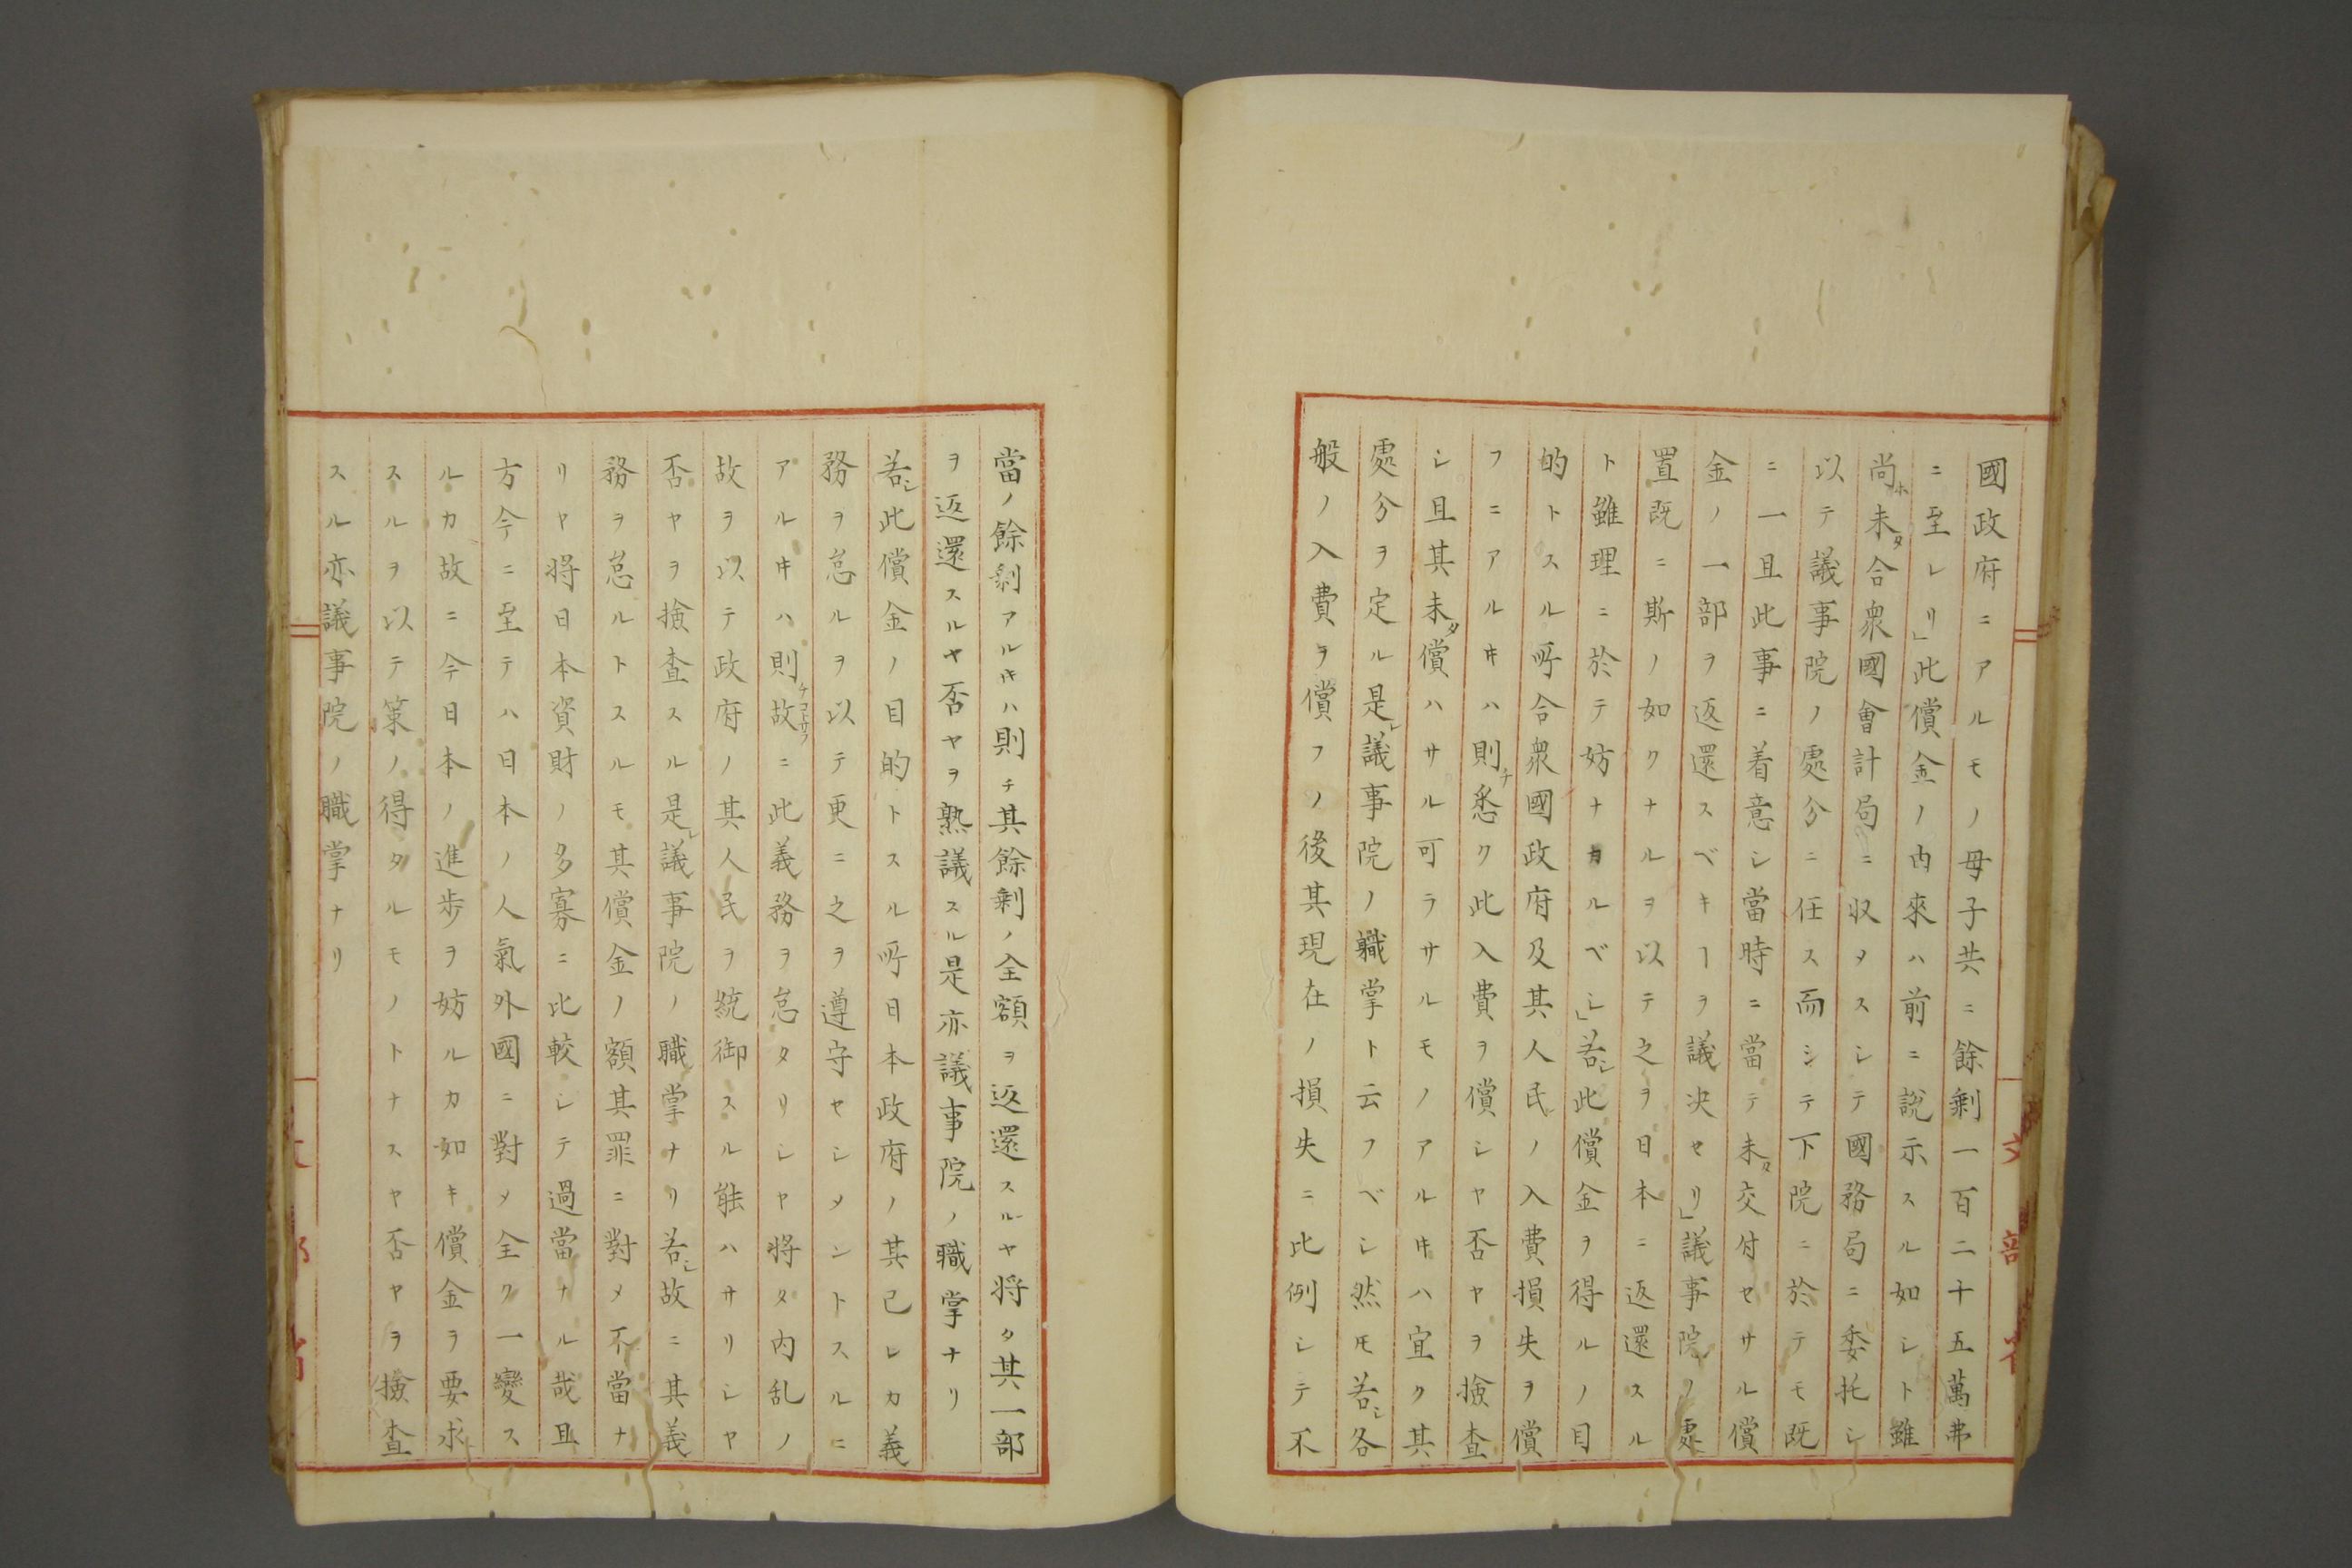 國政府ニアルモノ母子共ニ餘剰一百二十五萬弗
ニ至レリ」此償金ノ内來ハ前ニ說示スル如シト雖
尚ホ未タ合衆國會計局ニ収メスシテ國務局ニ委托シ
以テ議事院ノ處分ニ任ス而シテ下院ニ於テモ既
ニ一旦此事ニ着意シ當時ニ當テ未タ交付セサル償
金ノ一部ヲ返還スベキヿヲ議决セリ」議事院ノ處
置既ニ斯ノ如クナルヲ以テ之ヲ日本ニ返還スル
ト雖理ニ於テ妨ナカルベシ」若シ此償金ヲ得ルノ目
的トスル所合衆國政府及其人民ノ入費損失ヲ償
フニアルキハ則チ悉ク此入費ヲ償シヤ否ヤヲ撿査
シ且其未タ償ハサル可ラサルモノアルキハ宜ク其
處分ヲ定ル是レ議事院ノ職掌ト云フベシ然ヒ若シ各
般ノ入費ヲ償フノ後其現在ノ損失ニ比例シテ不
當ノ餘剰アルキハ則チ其餘剰ノ全額ヲ返還スルヤ将タ其一部
ヲ返還スルヤ否ヤヲ熟議スル是亦議事院ノ職掌ナリ
若シ此償金ノ目的トスル所日本政府ノ其己レカ義
務ヲ怠ルヲ以テ更ニ之ヲ遵守セシメントスルニ
アルキハ則チ故コトサラニ此義務ヲ怠タリシヤ将タ内乱ノ
故ヲ以テ政府ノ其人民ヲ統御スル能ハサリシヤ
否ヤヲ撿査スル是レ議事院ノ職掌ナリ若シ故ニ其義
務ヲ怠ルトスルモ其償金ノ額其罪ニ對メ不當ナ
リヤ将日本資財ノ多寡ニ比較シテ過當ナル哉且
方今ニ至テハ日本ノ人氣外國ニ對メ全ク一變ス
ルカ故ニ今日本ノ進歩ヲ妨ルカ如キ償金ヲ要求
スルヲ以テ策ノ得タルモノトナスヤ否ヤヲ撿査
スル亦議事院ノ職掌ナリ